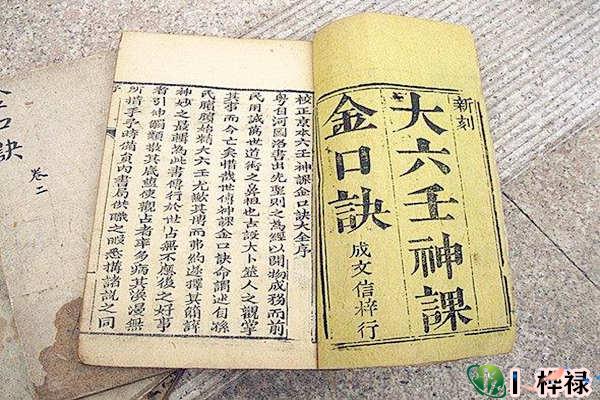 新刻
大六壬神課
金口訣
成文信梓行
校正京本六壬神課金口訣大全序
粵自河圖洛書出先聖則之為經以開物成務而前
民用誠萬世道術之鼻祖也古設大卜筮人之觀掌
其事而今亡矣惜哉世傳神課金口訣命謂述自孫
民臏歸大六壬尤歉其博而弗約遂擇其簡詳
神妙之最輯為此書傳行於世占無不應後之好事
者引伸觸類其底使觀占者率多病其浩漫無
所措手乎時備員內書局供職之暇悉搆諸說之同
金口訣
卷二
梓禄